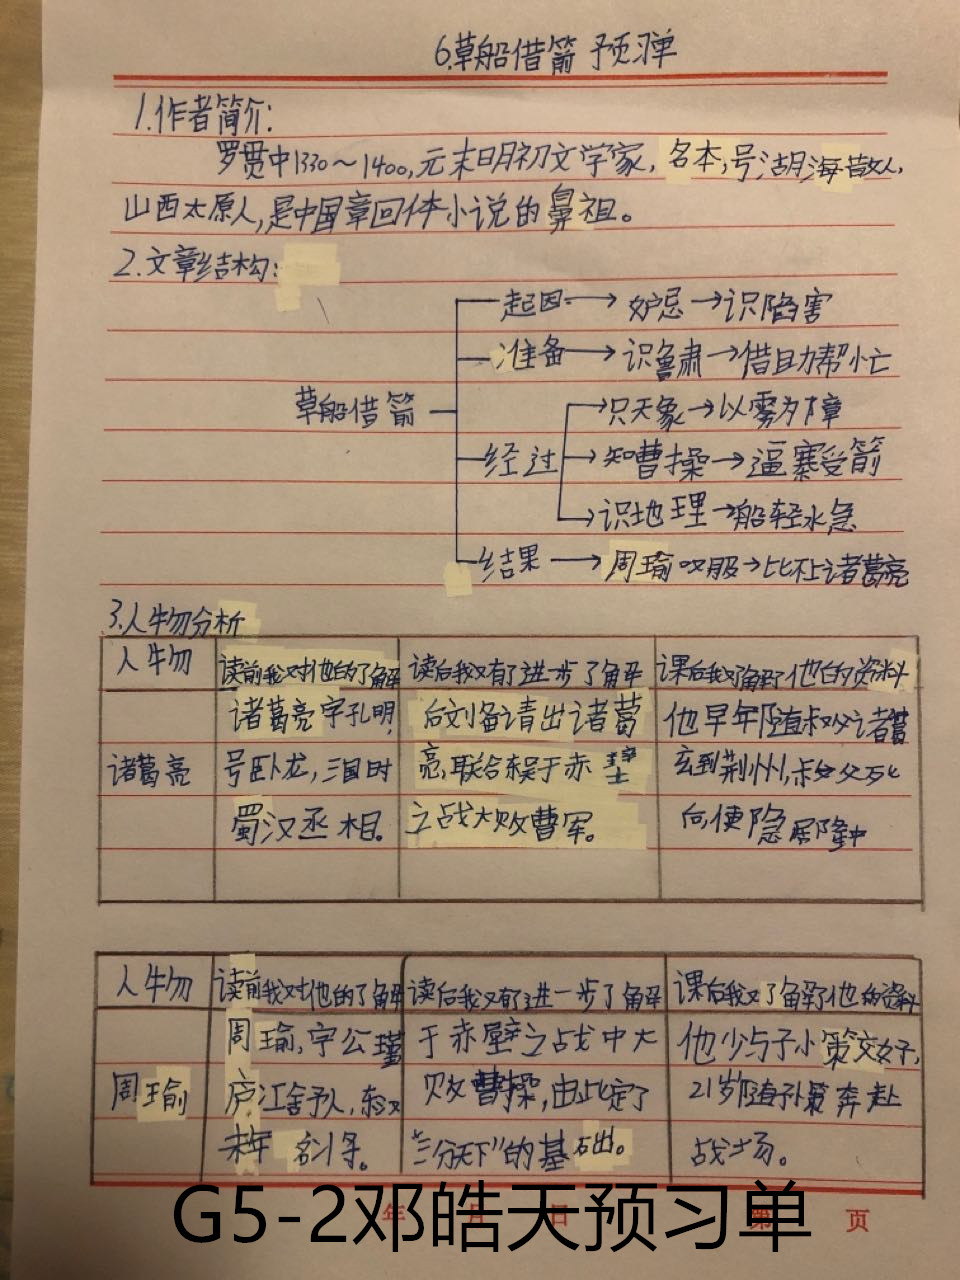 6.草船借箭 预习单
1.作者简介:
罗贯中1330～1400,元末明初文学家,名本,号湖海散人,
山西太原人,是中国章回体小说的鼻祖。
2.文章结构:
起因→妒忌→识陷害
准备→识鲁肃→借且力帮忙
草船借箭
只天象→以雾为障
经过→知曹操→逼寨受箭
识地理→船轻水急
结果→周瑜叹服→比不上诸葛亮
3.人物分析
人物 读前我对他的了解 读后我又有了进一步了解 课后我又了解了他的资料
诸葛亮字孔明, 后刘备请出诸葛 他早年随叔父诸葛
诸葛亮 号卧龙,三国时 亮,联合东吴于赤壁 玄到荆州,叔父死
蜀汉丞相。 之战大败曹军。 向便隐居隆中
人物 读前我对他的了解 读后我又有了进一步了解 课后我又了解了他的资料
周瑜,字公瑾 于赤壁之战中大 他少与子小策交好,
周瑜 庐江舒人,东汉 败曹操,由此定了 21岁随孙策奔赴
末年名将。 "三分天下"的基础。 战场。
年 月 日 第 页
G5-2邓皓天预习单